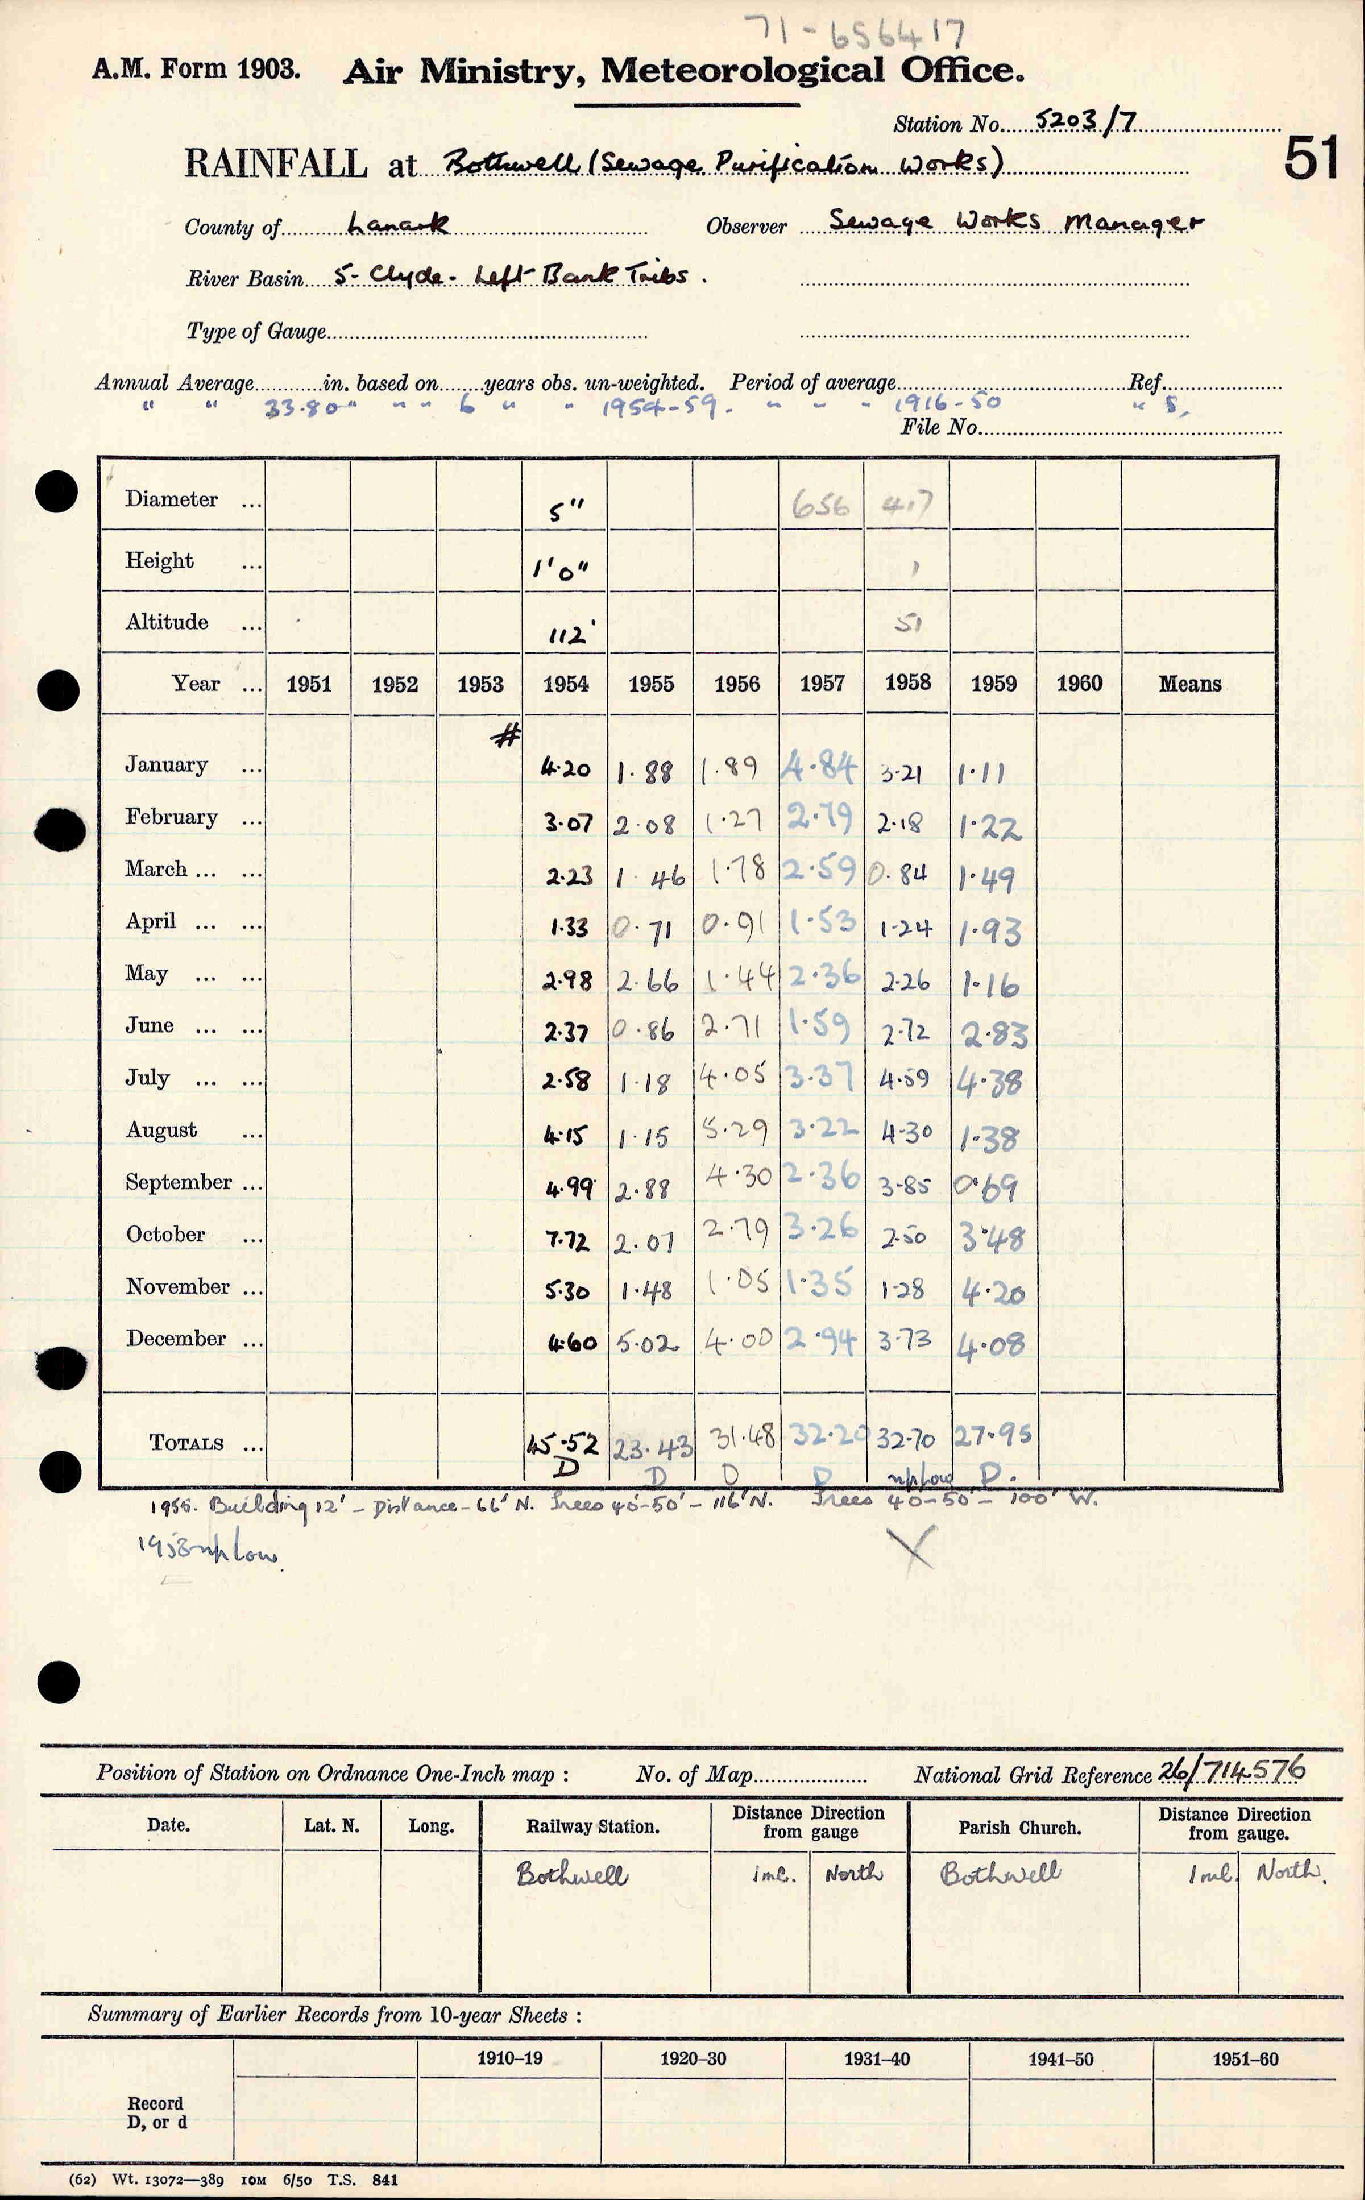 71-656417
A.M. Form 1903. Air Ministry, Meteorological Office.
Station No. 5203/7
RAINFALL at Bothwell (Sewage Purification Works) 51
County of Lanark Observer Sewage Works Manager
River Basin 5- Clyde- Left Bank Tribs.
Type of Gauge
Annual Average in. based on years obs. un-weighted. Period of average Ref.
" " 33.80" " " 6 " " 1954-59. " " " 1916-50 " S.
File No.
Diameter ... 5" 656 417
Height ... 1'0" 1
Altitude ... 112' 51
Year ... 1951 1952 1953 1954 1955 1956 1957 1958 1959 1960 Means
#
January ... 4.20 1.88 1.89 4.84 3.21 1.11
February ... 3.07 2.08 1.27 2.79 2.18 1.22
March ... ... 2.23 1.46 1.78 2.59 0.84 1.49
April ... ... 1.33 0.71 0.91 1.53 1.24 1.93
May ... ... 2.98 2.66 1.44 2.36 2.26 1.16
June ... ... 2.37 0.86 2.71 1.59 2.72 2.83
July ... ... 2.58 1.18 4.05 3.37 4.59 4.38
August ... 4.15 1.15 5.29 3.22 4.30 1.38
September ... 4.99 2.88 4.30 2.36 3.85 0.69
October ... 7.72 2.07 2.79 3.26 2.50 3.48
November ... 5.30 1.48 1.05 1.35 1.28 4.20
December ... 4.60 5.02 4.00 2.94 3.73 4.08
TOTALS ... 45.52 23.43 31.48 32.20 32.70 27.95
D D D D low D.
1955. Building 12' - Distance - 66' N. Trees 40'-50' - 116' N. Trees 40-50' - 100' W.
1958 low. X
Position of Station on Ordnance One-Inch map : No. of Map National Grid Reference 26/714576
Date. Lat. N. Long. Railway Station. Distance Direction from gauge Parish Church. Distance Direction from gauge.
Bothwell 1 ml. North Bothwell 1 ml. North.
Summary of Earlier Records from 10-year Sheets :
1910–19 1920–30 1931–40 1941–50 1951–60
Record
D, or d
(62) Wt. 13072—389 10M 6/50 T.S. 841